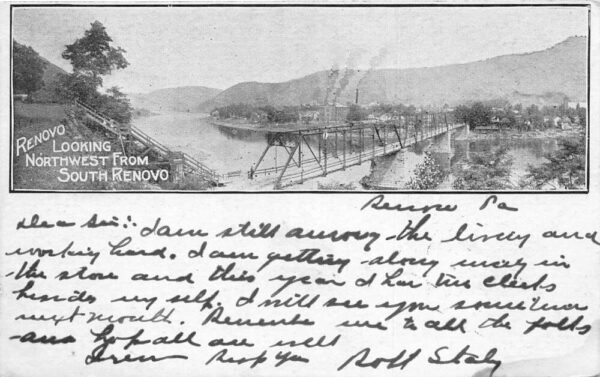 RENOVO
LOOKING
NORTHWEST FROM
SOUTH RENOVO
Renovo Pa
Dear Sir:- I am still among the lively and
working hard. I am getting along in
the store and this year I have two clerks
besides my self. I will see you sometime
next month. Remember me to all the folks
and hope all are well
Resp Yrs